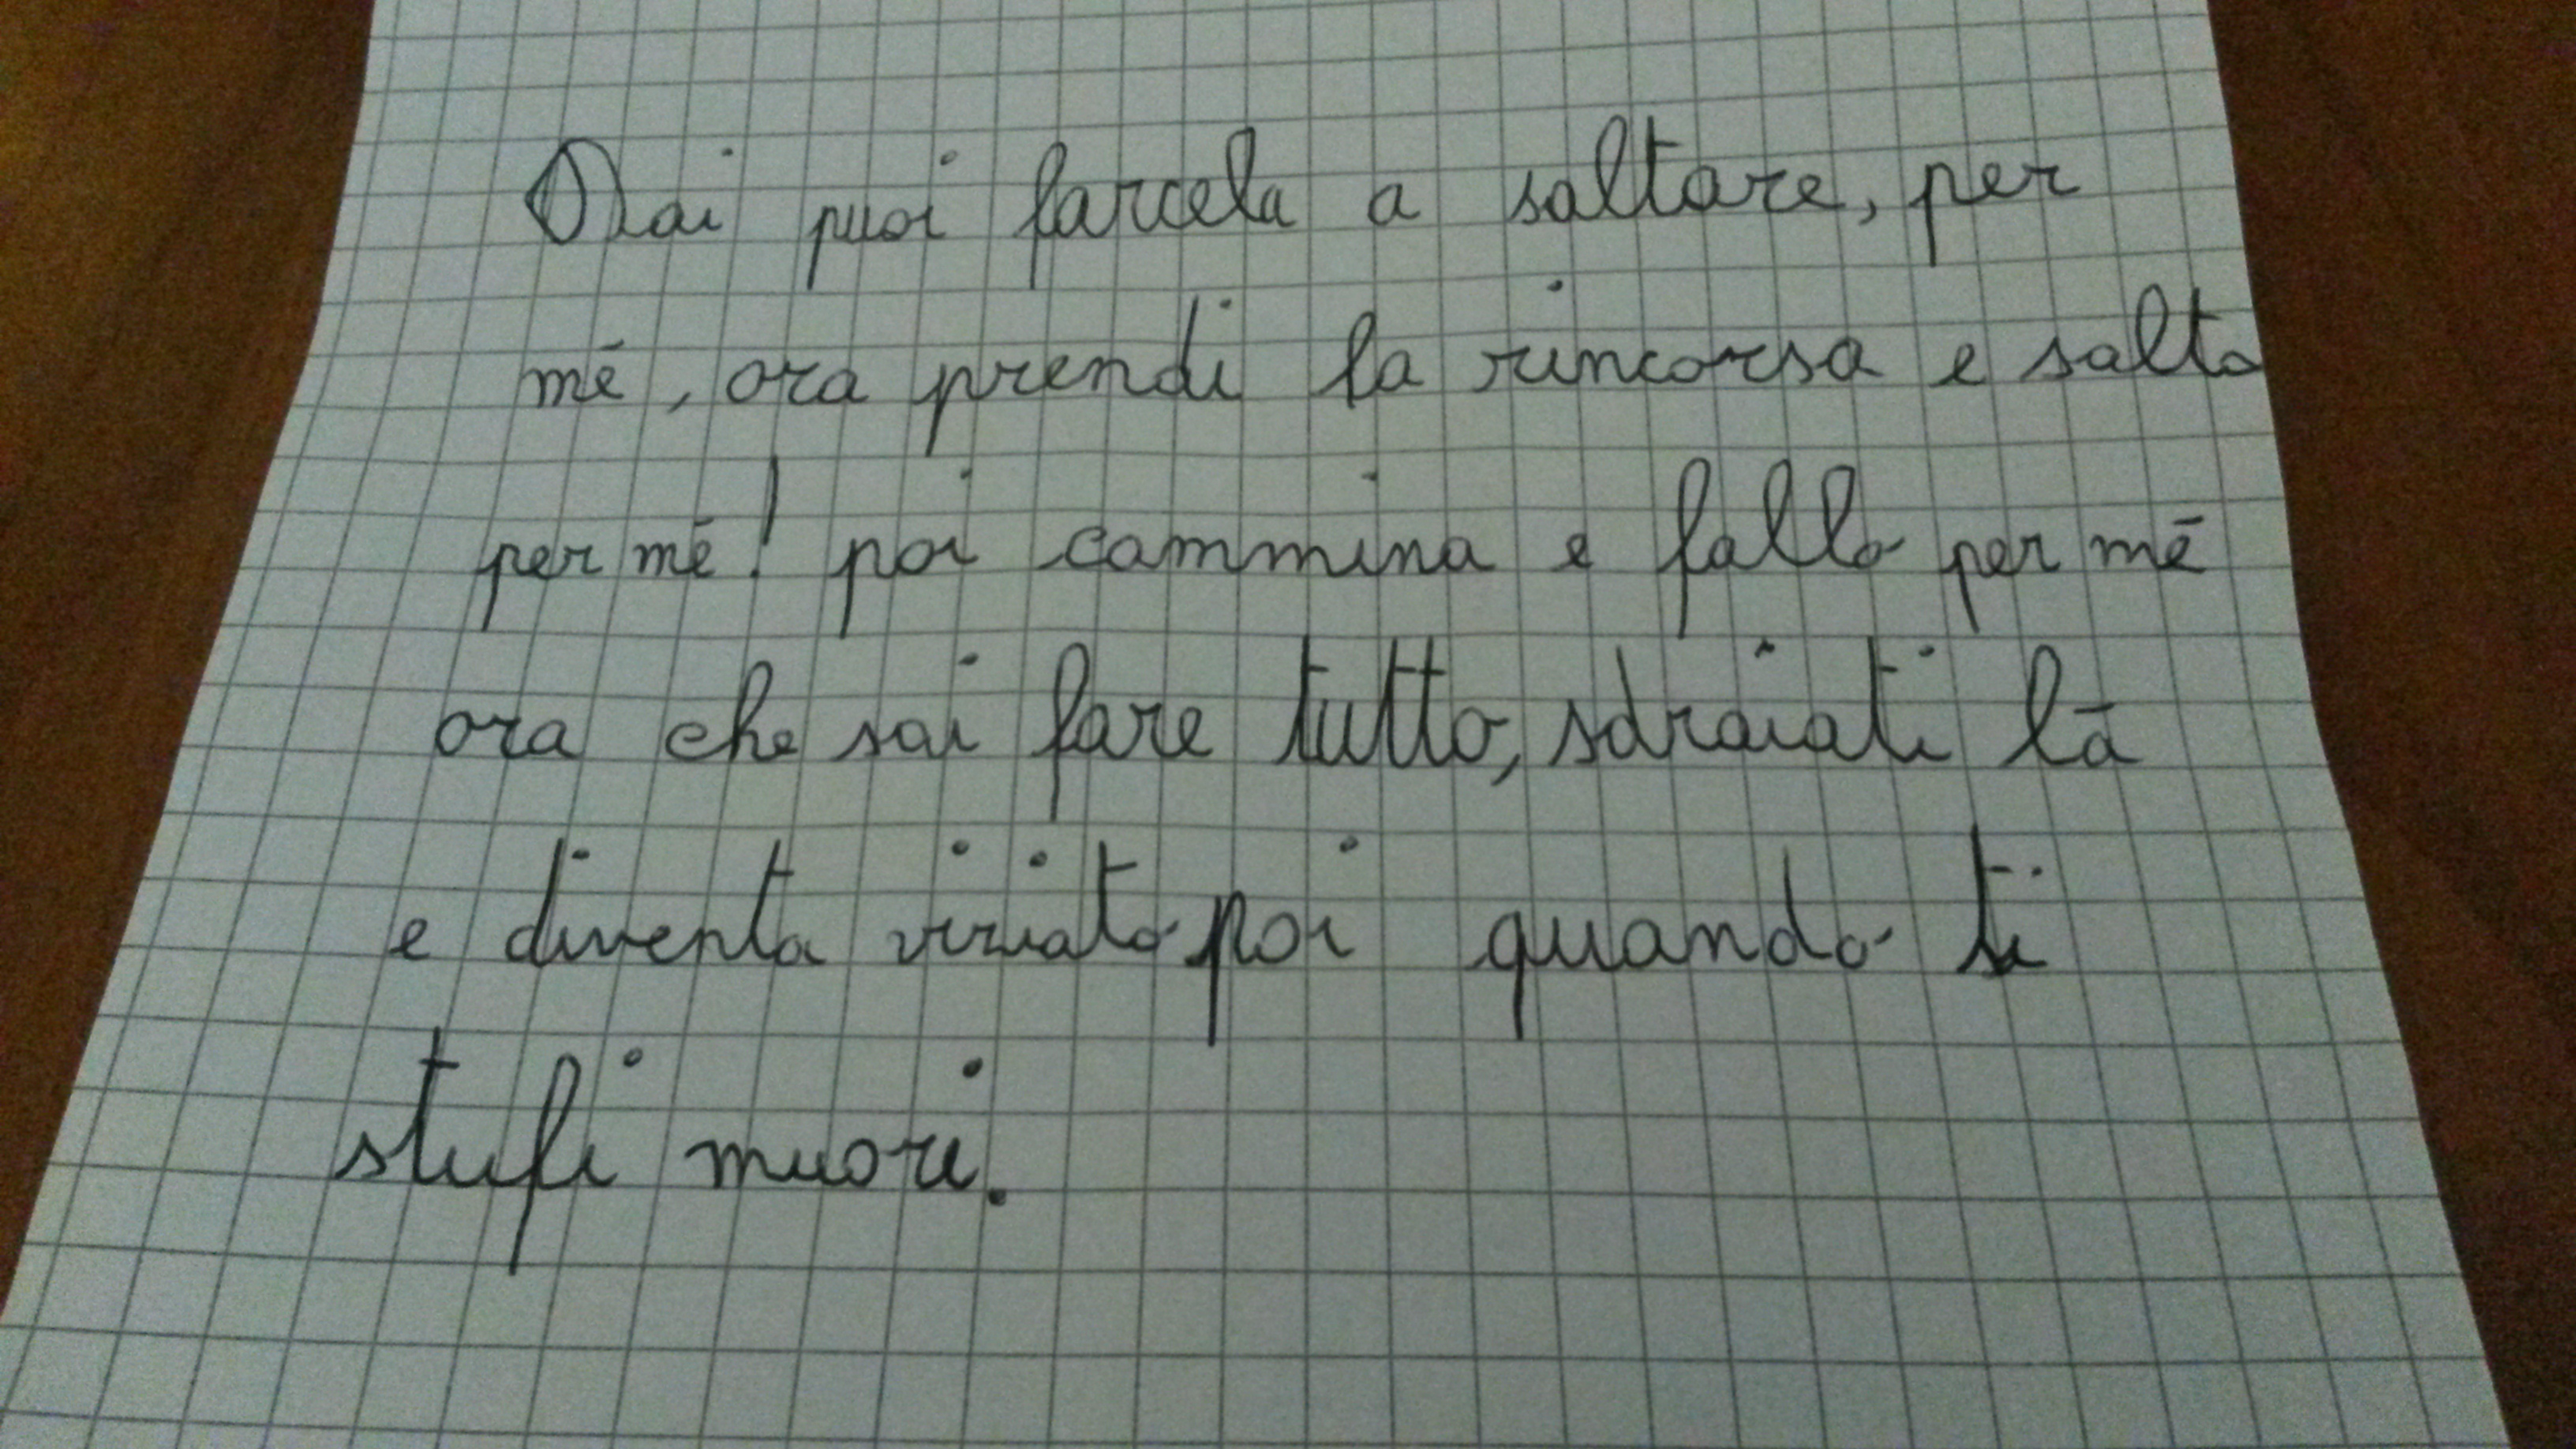 Dai puoi farcela a saltare, per
mē, ora prendi la rincorsa e salta
per mē! poi cammina e fallo per mē
ora che sai fare tutto, sdraiati lā
e diventa viziato poi quando ti
stufi muori.